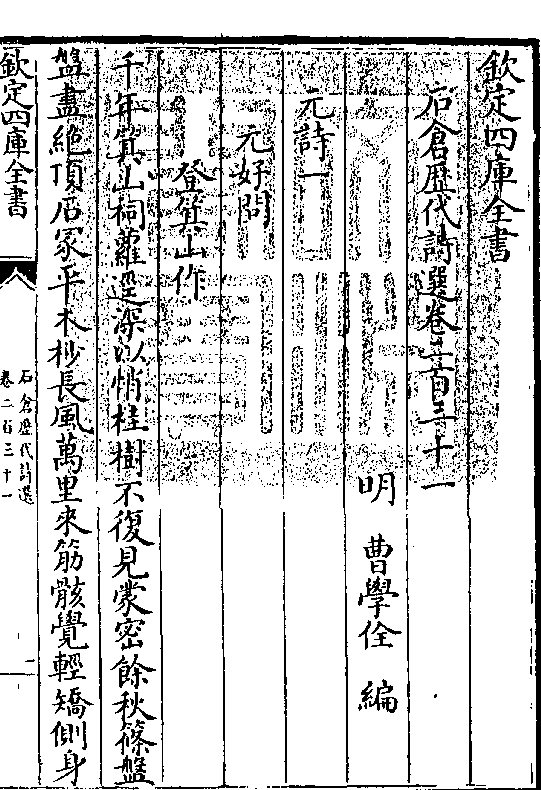 欽定四庫全書
石倉歴代詩選卷二百三十一
明 曹學佺 編
元詩一
元好問
登箕山作
千年箕山祠蘿逕深以悄桂樹不復見蒙密餘秋篠盤
盤盡絶頂居冢平木杪長風萬里來筋骸覺輕矯側身
欽定四庫全書
石倉歴代詩選
卷二百三十一
一